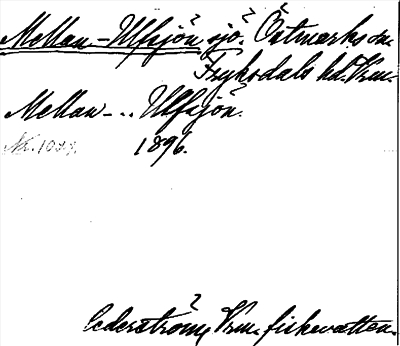 Mellan-Ulfsjön sjö. Östmarks sn
Fryksdals hd. Vrm.
Mellan-.. Ulfsjön.
1896.
Cederström, Vrm. fiskevatten.